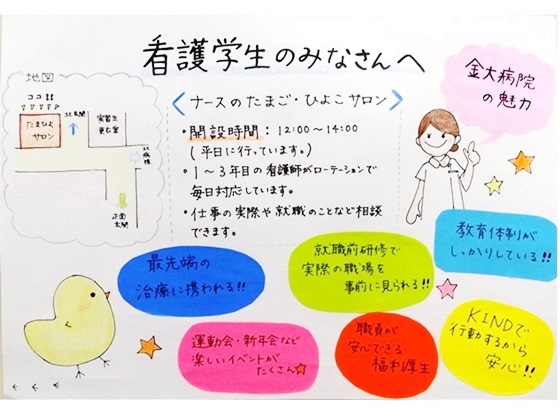 看護学生のみなさんへ
地図
ココ!!
たまひよ
サロン
北玄関
実習生
更衣室
北病棟
正面
玄関
〈ナースのたまご・ひよこサロン〉
・開設時間:12:00〜14:00
(平日に行っています。)
・1〜3年目の看護師がローテーションで
毎日対応しています。
・仕事の実際や就職のことなど相談
できます。
金大病院
の魅力
教育体制が
しっかりしている!!
最先端の
治療に携われる!!
就職前研修で
実際の職場を
事前に見られる!!
運動会・新年会など
楽しいイベントが
たくさん
職員が
安心できる
福利厚生
KINDで
行動するから
安心!!